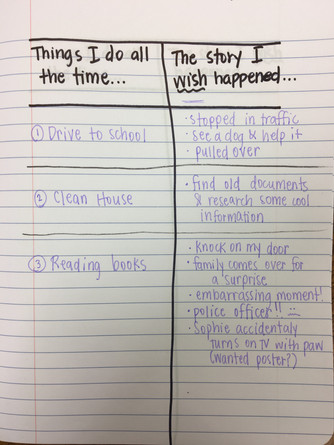 Things I do all
the time...
The story I
wish happened...
① Drive to school
· stopped in traffic
· see a dog & help it
· pulled over
② Clean House
· find old documents
& research some cool
information
③ Reading books
· Knock on my door
· family comes over for
a surprise
· embarrassing moment!
· police officer!!
· Sophie accidentaly
turns on TV with paw
(wanted poster?)